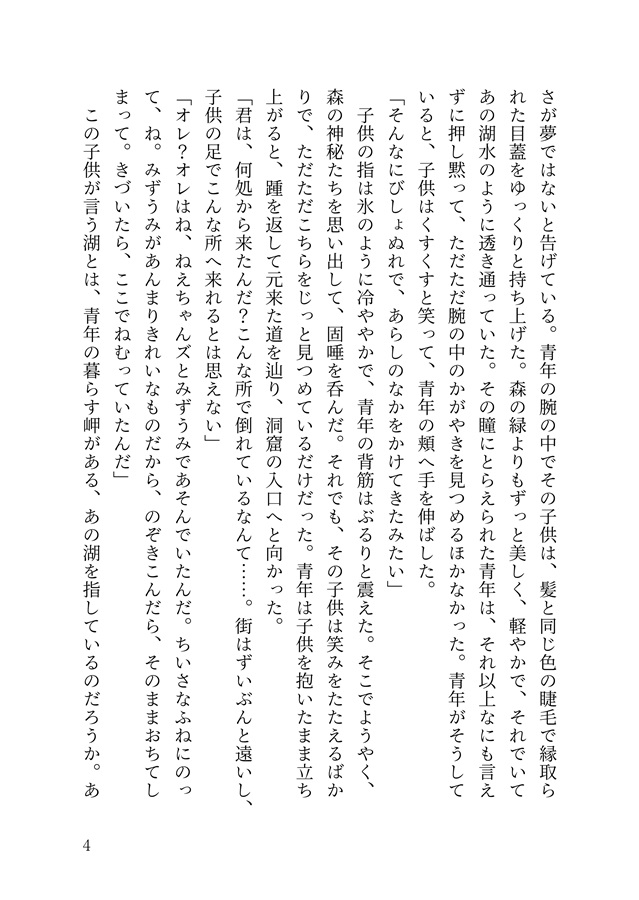 さが夢ではないと告げている。青年の腕の中でその子供は、髪と同じ色の睫毛で縁取ら
れた目蓋をゆっくりと持ち上げた。森の緑よりもずっと美しく、軽やかで、それでいて
あの湖水のように透き通っていた。その瞳にとらえられた青年は、それ以上なにも言え
ずに押し黙って、ただただ腕の中のかがやきを見つめるほかなかった。青年がそうして
いると、子供はくすくすと笑って、青年の頬へ手を伸ばした。
「そんなにびしょぬれで、あらしのなかをかけてきたみたい」
子供の指は氷のように冷ややかで、青年の背筋はぶるりと震えた。そこでようやく、
森の神秘たちを思い出して、固唾を呑んだ。それでも、その子供は笑みをたたえるばか
りで、ただただこちらをじっと見つめているだけだった。青年は子供を抱いたまま立ち
上がると、踵を返して元来た道を辿り、洞窟の入口へと向かった。
「君は、何処から来たんだ？こんな所で倒れているなんて……。街はずいぶんと遠いし、
子供の足でこんな所へ来れるとは思えない」
「オレ？オレはね、ねえちゃんズとみずうみであそんでいたんだ。ちいさなふねにのっ
て、ね。みずうみがあんまりきれいなものだから、のぞきこんだら、そのままおちてし
まって。きづいたら、ここでねむっていたんだ」
この子供が言う湖とは、青年の暮らす岬がある、あの湖を指しているのだろうか。あ
4